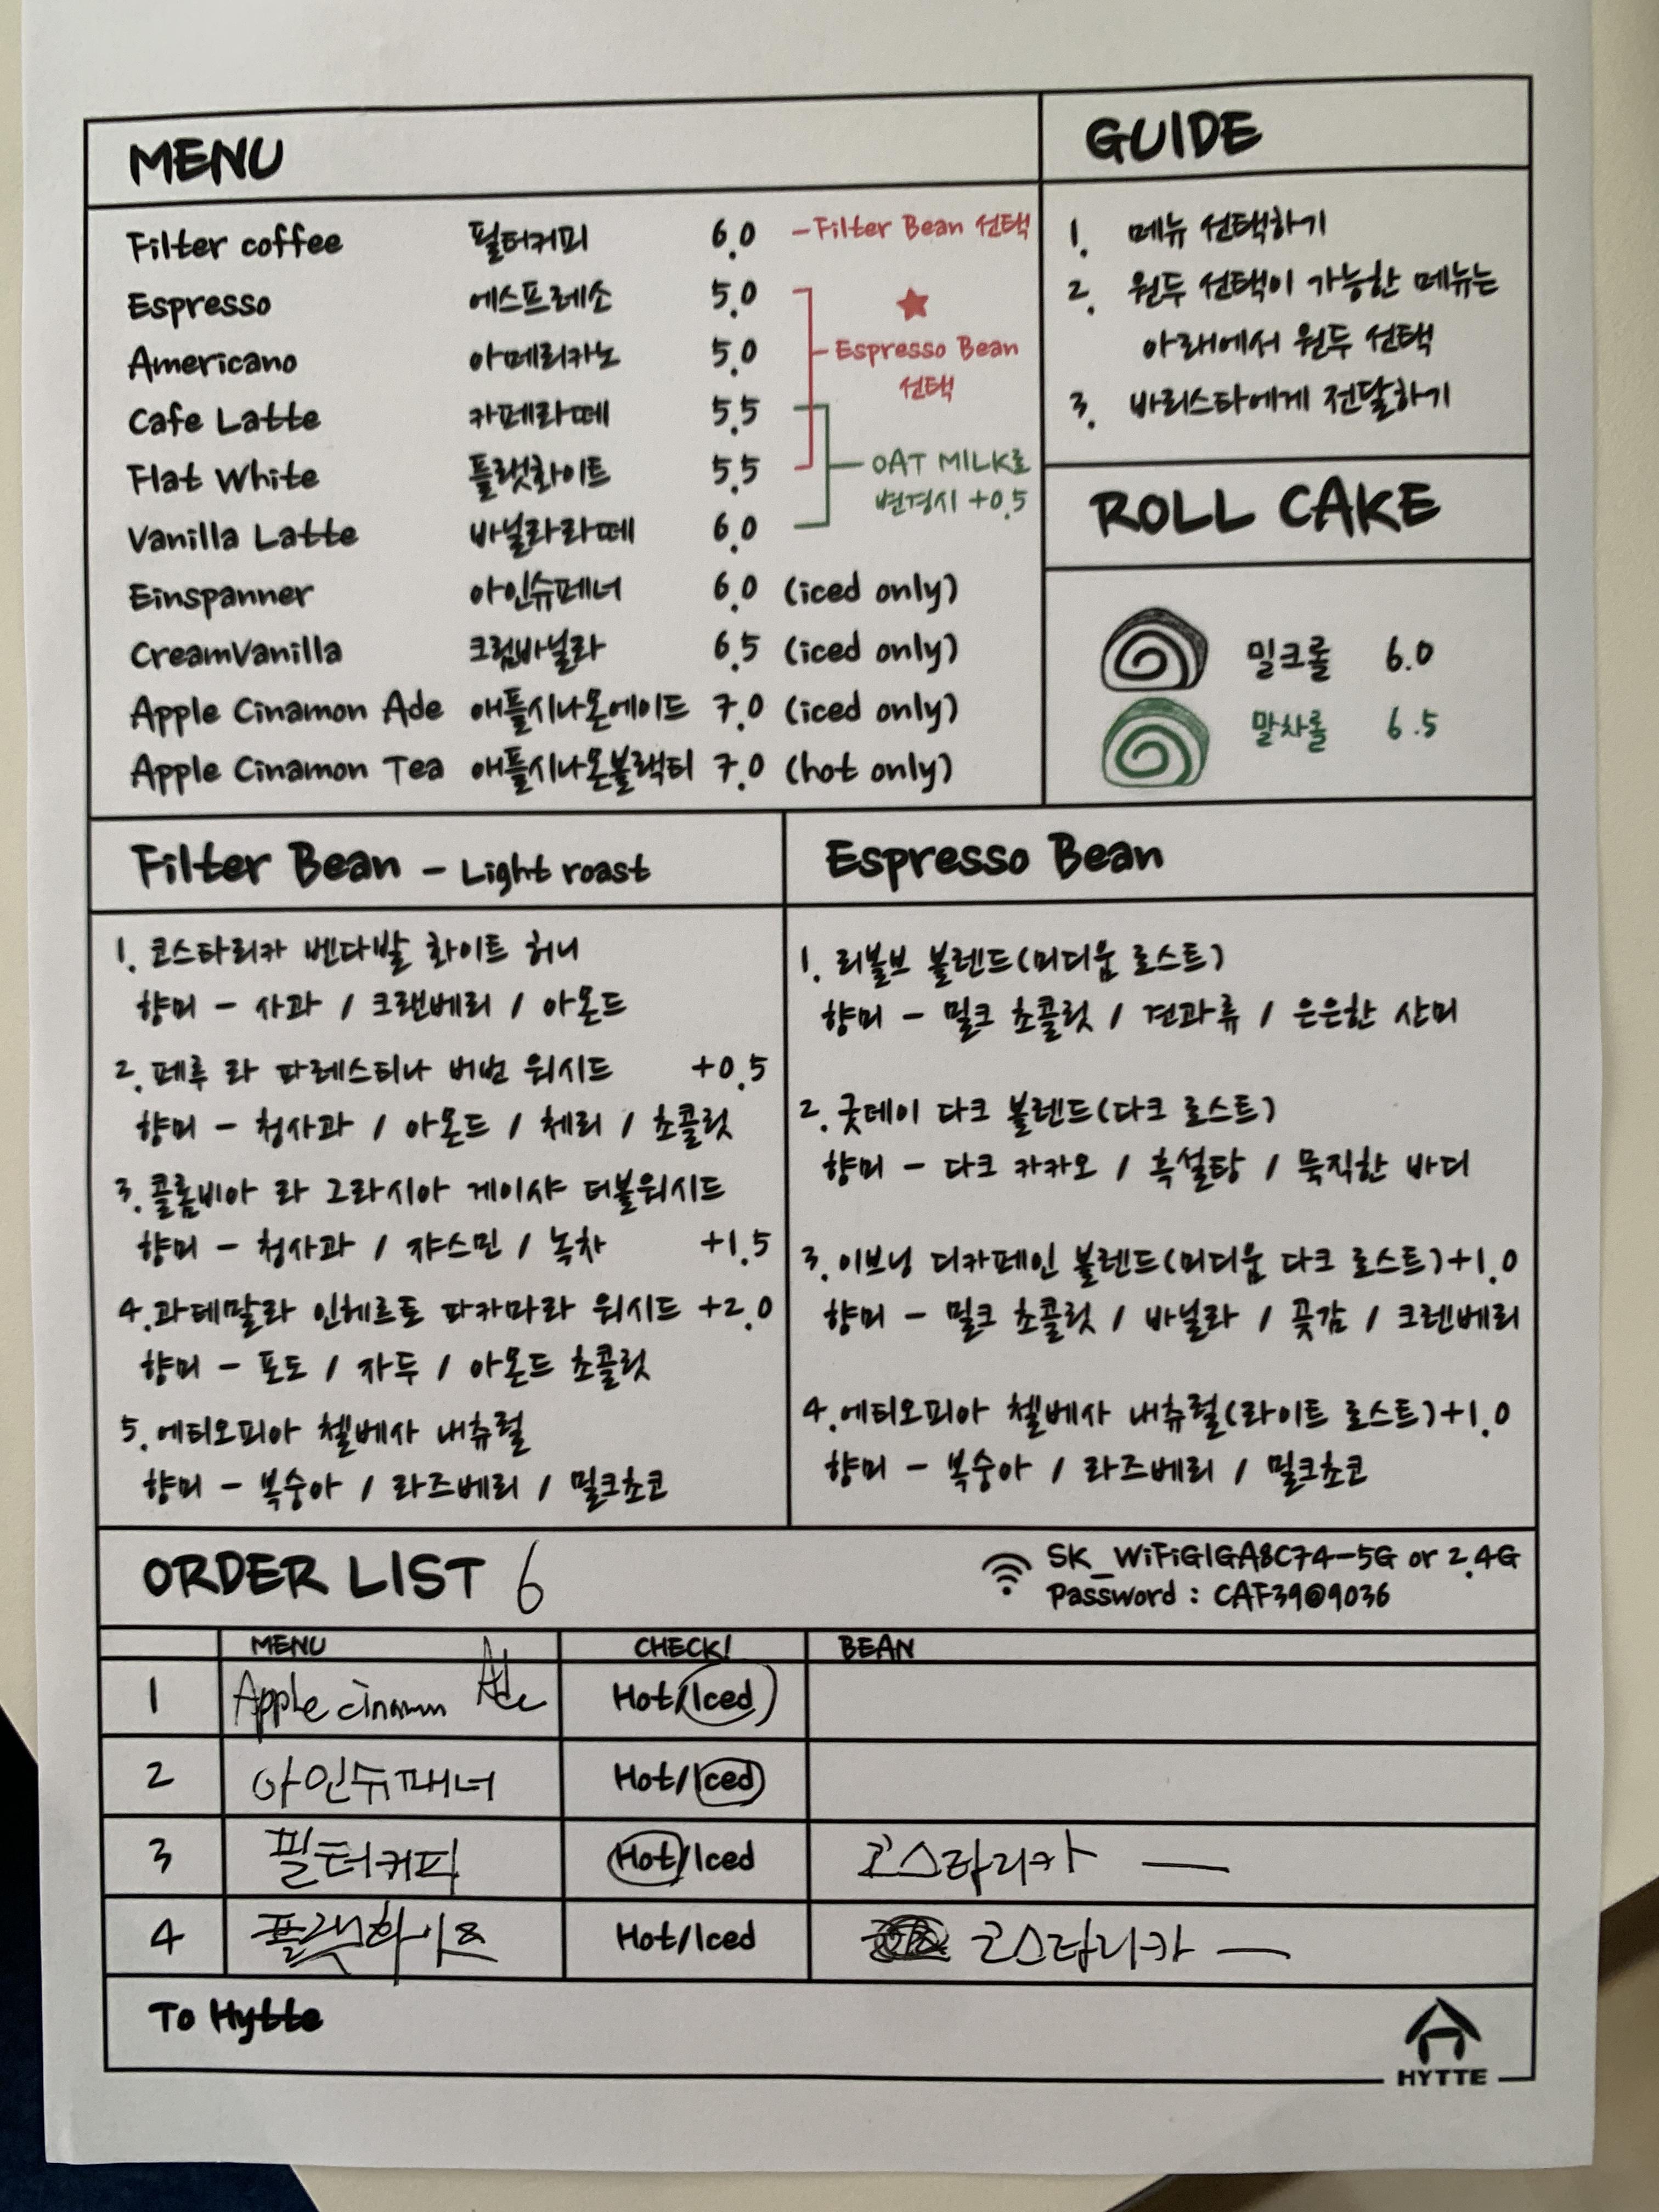 MENU
Filter coffee 필터커피 6.0 -Filter Bean 선택
Espresso 에스프레소 5.0
Americano 아메리카노 5.0
★
Espresso Bean
선택
Cafe Latte 카페라떼 5.5
Flat White 플랫화이트 5.5
OAT MILK로
변경시 +0.5
Vanilla Latte 바닐라라떼 6.0
Einspanner 아인슈페너 6.0 (iced only)
CreamVanilla 크림바닐라 6.5 (iced only)
Apple Cinamon Ade 애플시나몬에이드 7.0 (iced only)
Apple Cinamon Tea 애플시나몬블랙티 7.0 (hot only)
GUIDE
1. 메뉴 선택하기
2. 원두 선택이 가능한 메뉴는
아래에서 원두 선택
3. 바리스타에게 전달하기
ROLL CAKE
밀크롤 6.0
말차롤 6.5
Filter Bean - Light roast
1. 코스타리카 벤다발 화이트 허니
향미 - 사과 / 크랜베리 / 아몬드
2. 페루 라 파레스티나 버번 워시드 +0.5
향미 - 청사과 / 아몬드 / 체리 / 초콜릿
3. 콜롬비아 라 그라시아 게이샤 더블워시드
향미 - 청사과 / 쟈스민 / 녹차 +1.5
4. 과테말라 인헤르토 파카마라 워시드 +2.0
향미 - 포도 / 자두 / 아몬드 초콜릿
5. 에티오피아 첼베사 내츄럴
향미 - 복숭아 / 라즈베리 / 밀크초코
Espresso Bean
1. 리볼브 블렌드(미디움 로스트)
향미 - 밀크 초콜릿 / 견과류 / 은은한 산미
2. 굿데이 다크 블렌드(다크 로스트)
향미 - 다크 카카오 / 흑설탕 / 묵직한 바디
3. 이브닝 디카페인 블렌드(미디움 다크 로스트)+1.0
향미 - 밀크 초콜릿 / 바닐라 / 곶감 / 크렌베리
4. 에티오피아 첼베사 내츄럴(라이트 로스트)+1.0
향미 - 복숭아 / 라즈베리 / 밀크초코
ORDER LIST 6
SK_WiFiGIGA8C74-5G or 2.4G
Password : CAF39@9036
MENU CHECK! BEAN
1 Apple cinamon Ade Hot/Iced
2 아인슈패너 Hot/Iced
3 필터커피 Hot/Iced 코스타리카 —
4 플랫화이트 Hot/Iced 코스타리카 —
To Hytte
HYTTE